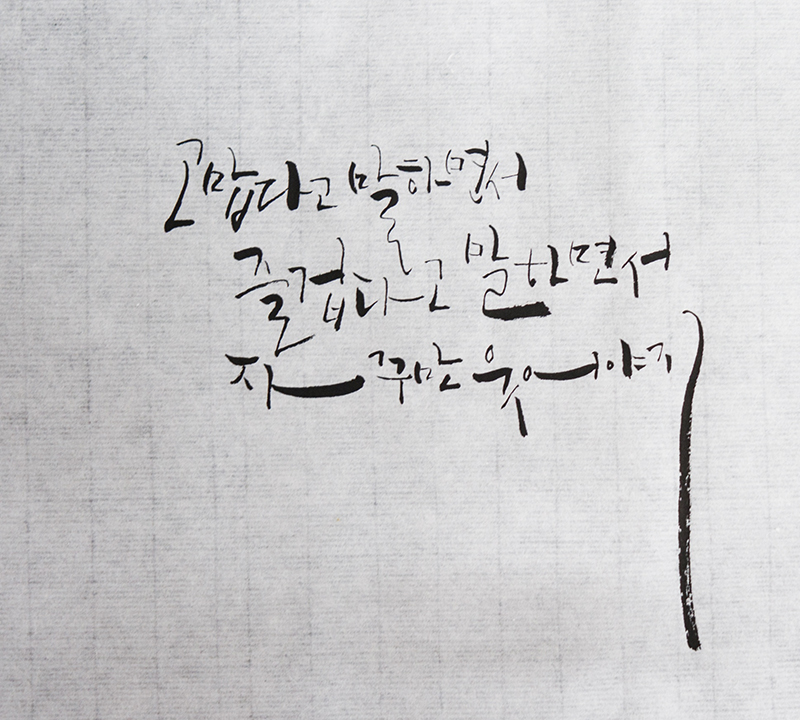 고맙다고 말하면서
즐겁다고 말하면서
자꾸만 웃어야지